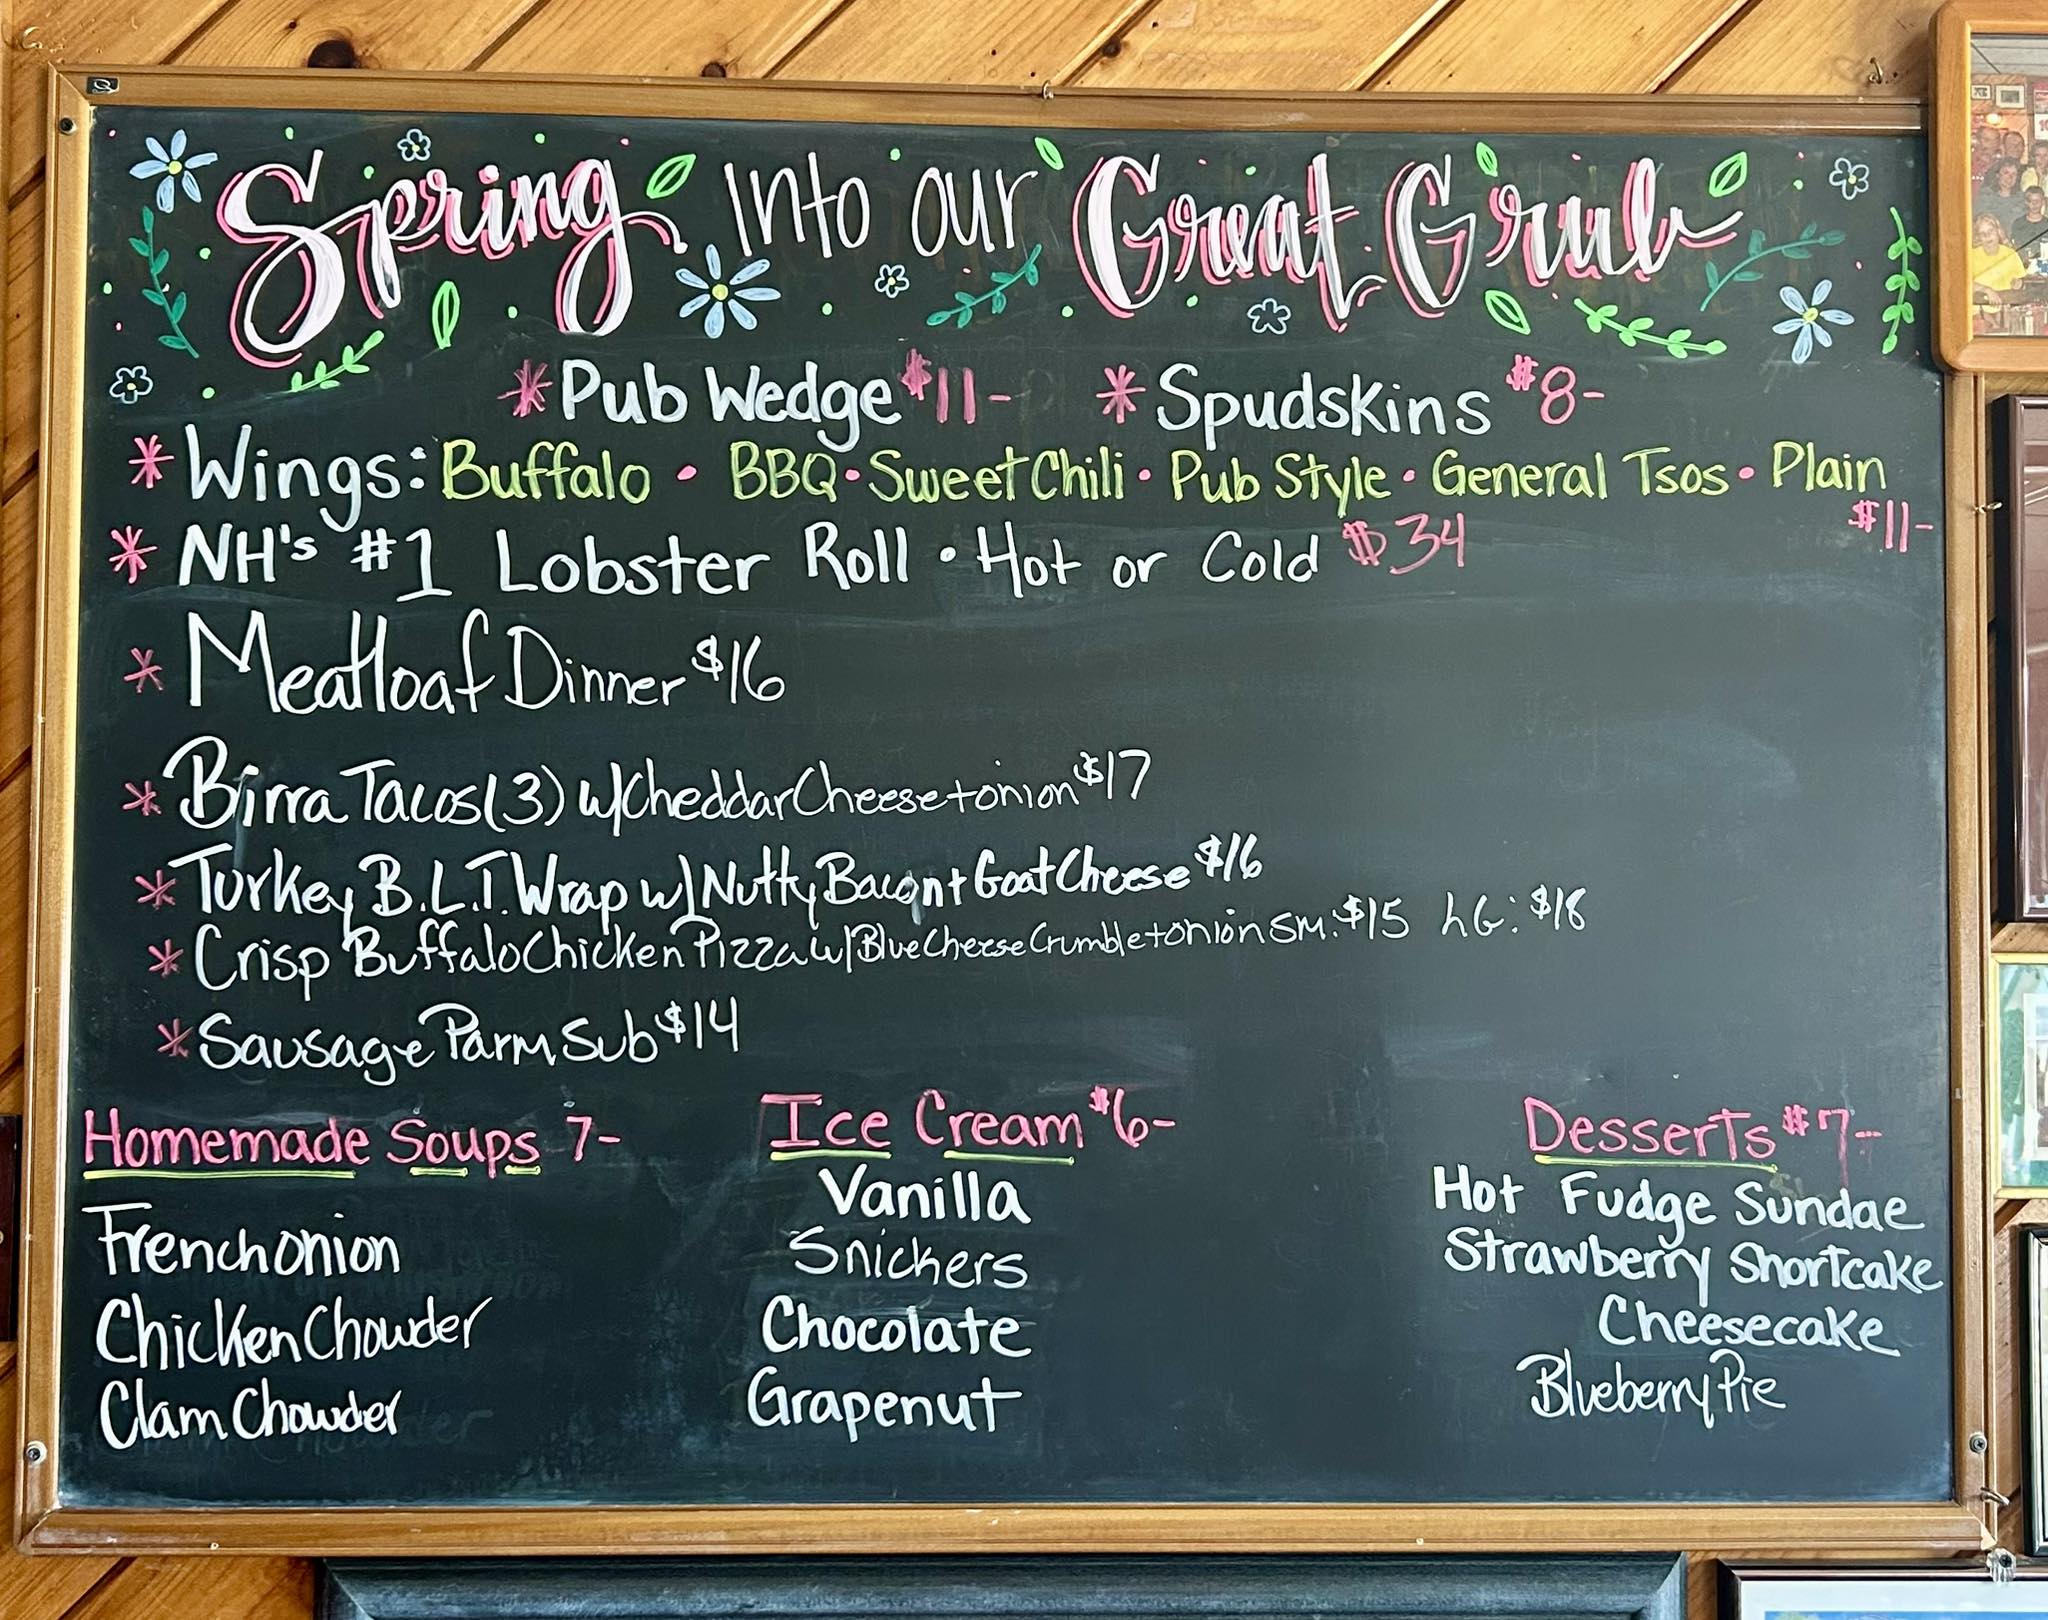 Spring Into our Great Grub
* Pub Wedge $11- * Spudskins $8-
* Wings: Buffalo • BBQ • Sweet Chili • Pub Style • General Tsos • Plain $11-
* NH's #1 Lobster Roll • Hot or Cold $34
* Meatloaf Dinner $16
* Birra Tacos (3) w/ Cheddar Cheese + onion $17
* Turkey B.L.T. Wrap w/ Nutty Bacon + Goat Cheese $16
* Crisp Buffalo Chicken Pizza w/ Blue Cheese Crumble + onion SM: $15 LG: $18
* Sausage Parm Sub $14
Homemade Soups 7-
French onion
Chicken Chowder
Clam Chowder
Ice Cream $6-
Vanilla
Snickers
Chocolate
Grapenut
Desserts $7-
Hot Fudge Sundae
Strawberry Shortcake
Cheesecake
Blueberry Pie